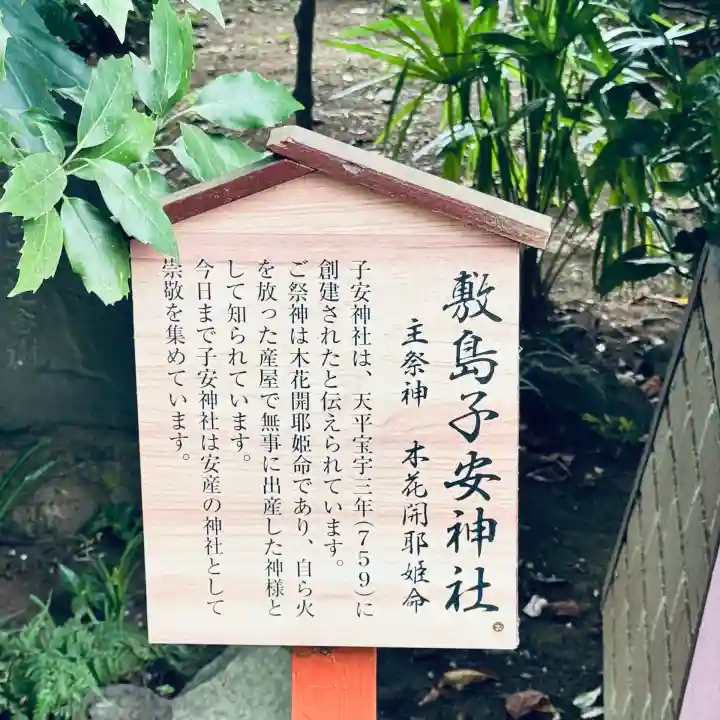 敷島子安神社
主祭神 木花開耶姫命
子安神社は、天平宝宇三年(759)に
創建されたと伝えられています。
ご祭神は木花開耶姫命であり、自ら火
を放った産屋で無事に出産した神様と
して知られています。
今日まで子安神社は安産の神社として
崇敬を集めています。